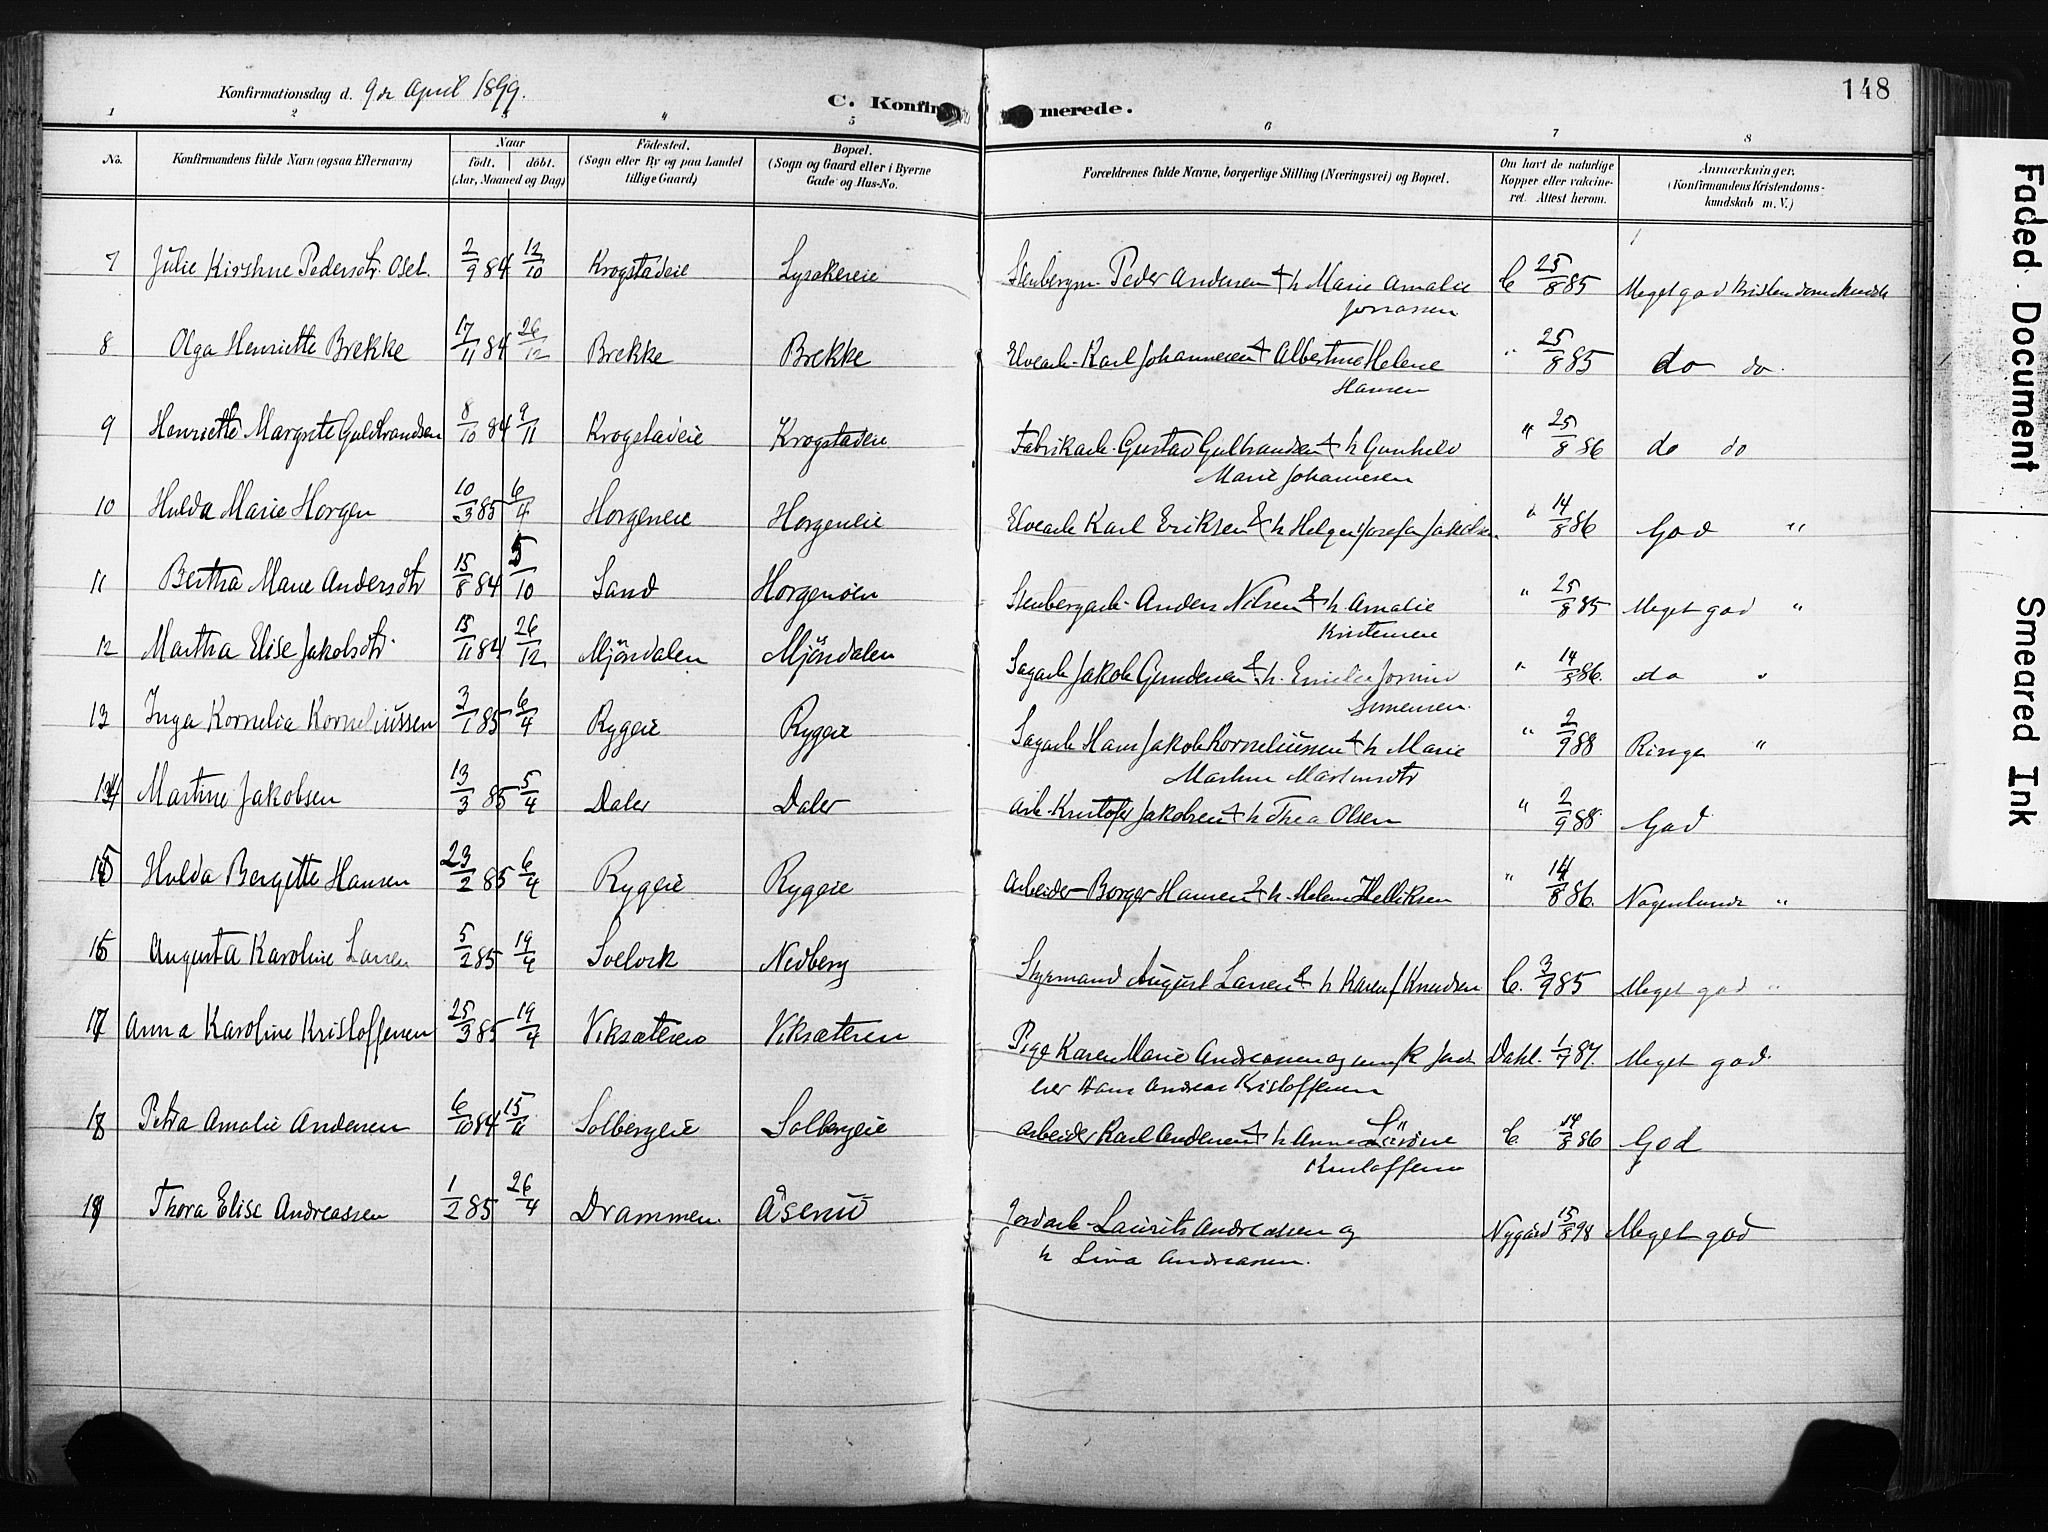 148
Konfirmationsdag d. 9de April 1899.
C. Konfir merede.
1 2 3 4 5 6 7 8
No. Konfirmandens fulde Navn (ogsaa Efternavn) Naar født. døbt. (Aar, Maaned og Dag) Fødested. (Sogn eller By og paa Landet tillige Gaard) Bopæl. (Sogn og Gaard eller i Byerne Gade og Hus-No. Forældrenes fulde Navne, borgerlige Stilling (Næringsvei) og Bopæl. Om havt de naturlige Kopper eller vakcineret. Attest herom. Anmærkninger. (Konfirmandens Kristendomskundskab m. V.)
7 Julie Kirstine Pedersdtr. Oset. 2/9 84 12/10 Krogstadeie Lysakereie Stenbergm. Peder Andersen & h Marie Amalie C 25/8 85 Meget god
Jonassen
8 Olga Henriette Brekke 17/11 84 26/12 Brekke Brekke Elvearb. Karl Johannesen & Albertine Helene " 25/8 85 do do.
Hansen
9 Henriette Margrete Gulbrandsen 8/10 84 9/11 Krogstadeie Krogstadeie Fabrikarb. Gustav Gulbrandsen & h Gunhild " 25/8 86 do do
Marie Johannesen
10 Hulda Marie Horgen 10/3 85 6/4 Horgeneie Horgeneie Elvearb Karl Eriksen & h Josefa Jakobsen " 14/8 86 God "
11 Bertha Marie Andersdtr 15/8 84 5/10 Sand Horgenoen Stenbergarb. Anders Nilsen & h. Amalie " 25/8 85 Meget god "
Kristensen
12 Martha Elise Jakobsdtr. 15/11 84 26/12 Mjöndalen Mjöndalen Sagarb Jakob Gundersen & h. Emilie " 14/8 86. do "
Simensen.
13 Inga Kornelia Korneliussen 3/1 85 6/4 Rygeie Rygeie Sagarb Hans Jakob Korneliussen & h Marie " 2/9 88 Ringe "
Martine Martinsdtr
14 Martine Jakobsen 13/3 85 5/4 Daler Daler Arb. Kristofer Jakobsen & h Thea Olsen " 2/9 88 God
15 Hulda Bergitte Hansen 23/2 85 6/4 Rygeie Rygeie Arbeider Borger Hansen & h. Helene Helliksen " 14/8 86. Nogenlunde "
16 Augusta Karoline Larsen 5/2 85 19/4 Svelvik Nedberg Styrmand August Larsen & h Karen Knudsen C. 3/9 85 Meget god "
17 Anna Karoline Kristoffersen 25/3 85 19/4 Viksæteren Viksæteren Pige Karen Marie Andreassen og Dahl. 1/7 87. Meget god.
Hans Andreas Kristoffersen
18 Petra Amalie Andersen 6/10 84 15/11 Solbergeie Solbergeie Arbeider Karl Andersen & h Anne Sörine C. 14/8 86 God
Kristoffersen
19 Thora Elise Andreassen 1/2 85 26/4 Drammen. Åserud Jordarb. Laurits Andreassen og Nygård 15/8 98 Meget god
h Lina Andreassen.
Faded Document
Smeared Ink